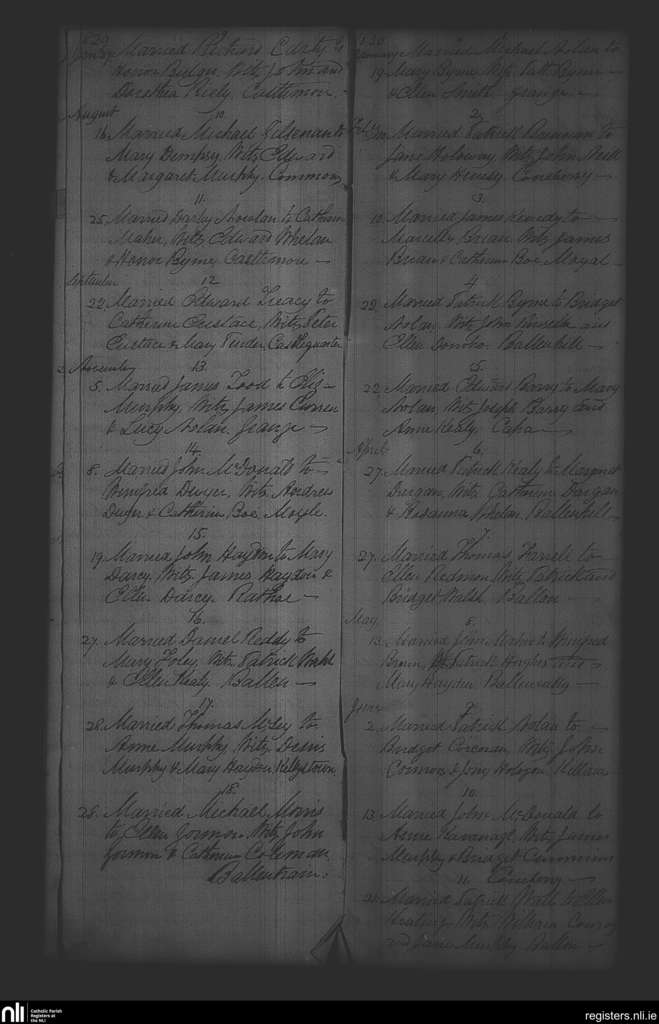 1829
Married Richard Carty to
Honor Bulger, Witz John and
Dorothea Kiely. Castlemore.
August 10.
16. Married Michael to
Mary Dempsy Witz Edward
& Margaret Murphy. Commons
11.
25. Married Darby Nowlan to Catherine
Maher, Witz Edward Whelan
& Honor Byrne Castlemore —
September 12
22. Married Edward Treacy to
Catherine Eustace, Witz Peter
Eustace & Mary Tinder, Castlequarter
November 13.
5. Married James Todd to Eliz—
Murphy, Witz James Curren
& Lucy Nolan. Grange —
14.
8. Married John McDonald to —
Winefred Dwyer, Witz Andrew
Dwyer & Catherine Boe. Moyle.
15.
19. Married John Haydon to Mary
Darcy Witz James Haydon &
Ellen Darcy. Rathoe —
16.
27. Married Daniel Reddy to
Mary Foley, Witz Patrick Walsh
& Ellen Kealy. Ballon —
17.
28. Married Thomas to
Anne Murphy Witz Denis
Murphy & Mary Haydon Kellystown
18.
28. Married Michael Morris
to Ellen Gormon Witz John
Gormon & Catherine Coleman
Ballintrane.
1830
January Married Michael Nolan to
19. Mary Byrne Witz Patt Byrne —
& Ellen Smith. Grange —
2.
Feb Married Patrick Brennan to
Jane Witz John
& Mary
3.
Married James Kenedy to —
Marcella Brian Witz James
Brian & Catherine Boe Moyal —
4.
22. Married Patrick Byrne to Bridget
Nolan. Witz John Kinsella and
Ellen Donoho. Ballenkill —
5.
22. Married Edward Barry to Mary
Nolan Witz Joseph Barry and
Anne Kealy. —
April 6.
27. Married Patrick Kealy to Margaret
Duegan, Witz Catherine Duegan
& Rosanna Whelan. Ballenkill —
7.
27. Married Thomas Farrell to —
Ellen Redmon Witz Patrick and
Bridget Walsh. Ballon —
May 8.
13. Married John to Winifred
Brown, Witz Patrick Hughes
Mary Hayden —
June 9.
2. Married Patrick Nolan to —
Bridget Corcoran Witz John
Connors &
10.
13. Married John McDonald to
Anne Kavanagh, Witz James
Murphy & Bridget Cummins
11.
Married Patrick to Ellen
Witz William
and Murphy Ballon —
nli
Catholic Parish
Registers at
the NLI
registers.nli.ie